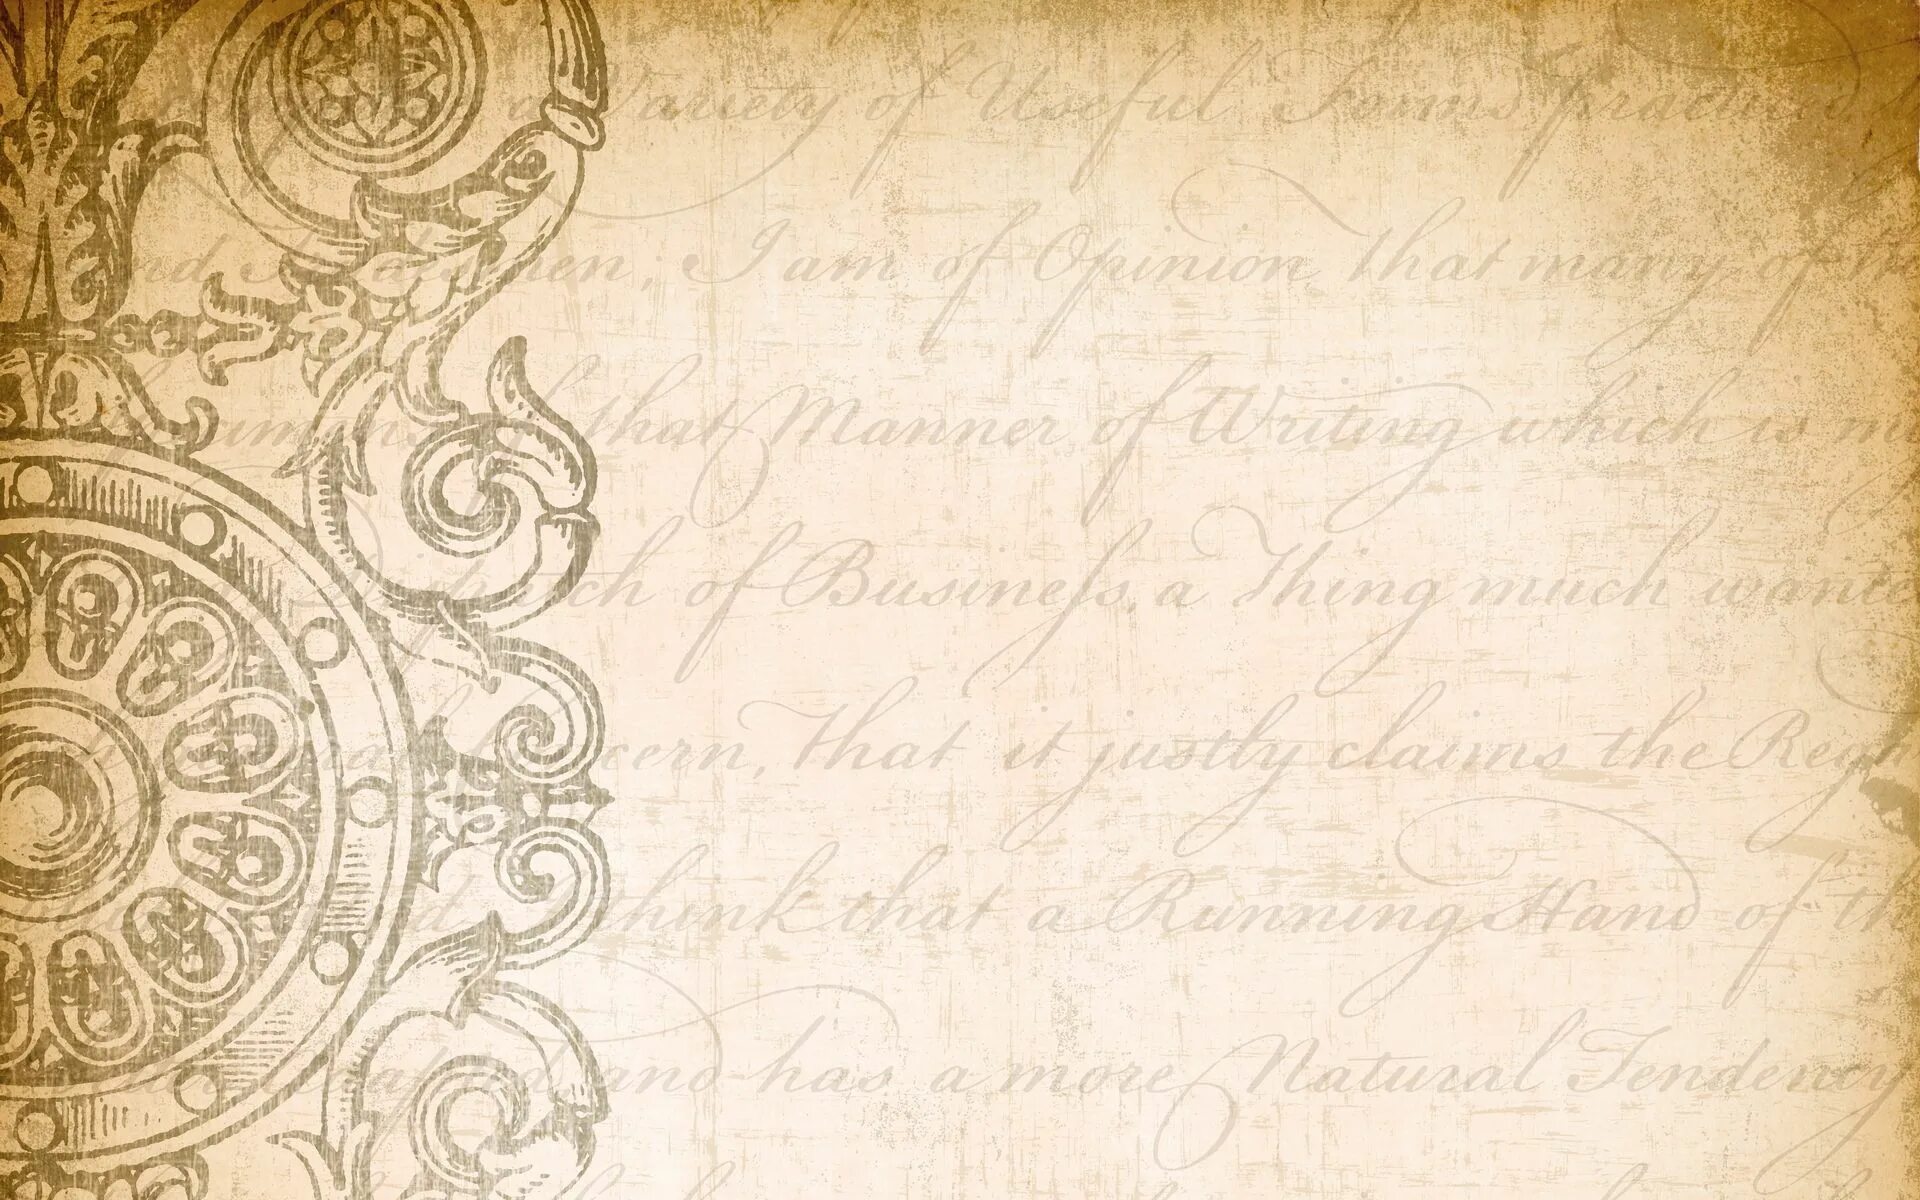 a Variety of Useful Forms practiced
men; I am of Opinion that many of
that Manner of Writing which is
Dispatch of Business, a Thing much wante
cern, That it justly claims the
think that a Running Hand of
and has a more Natural Tendency